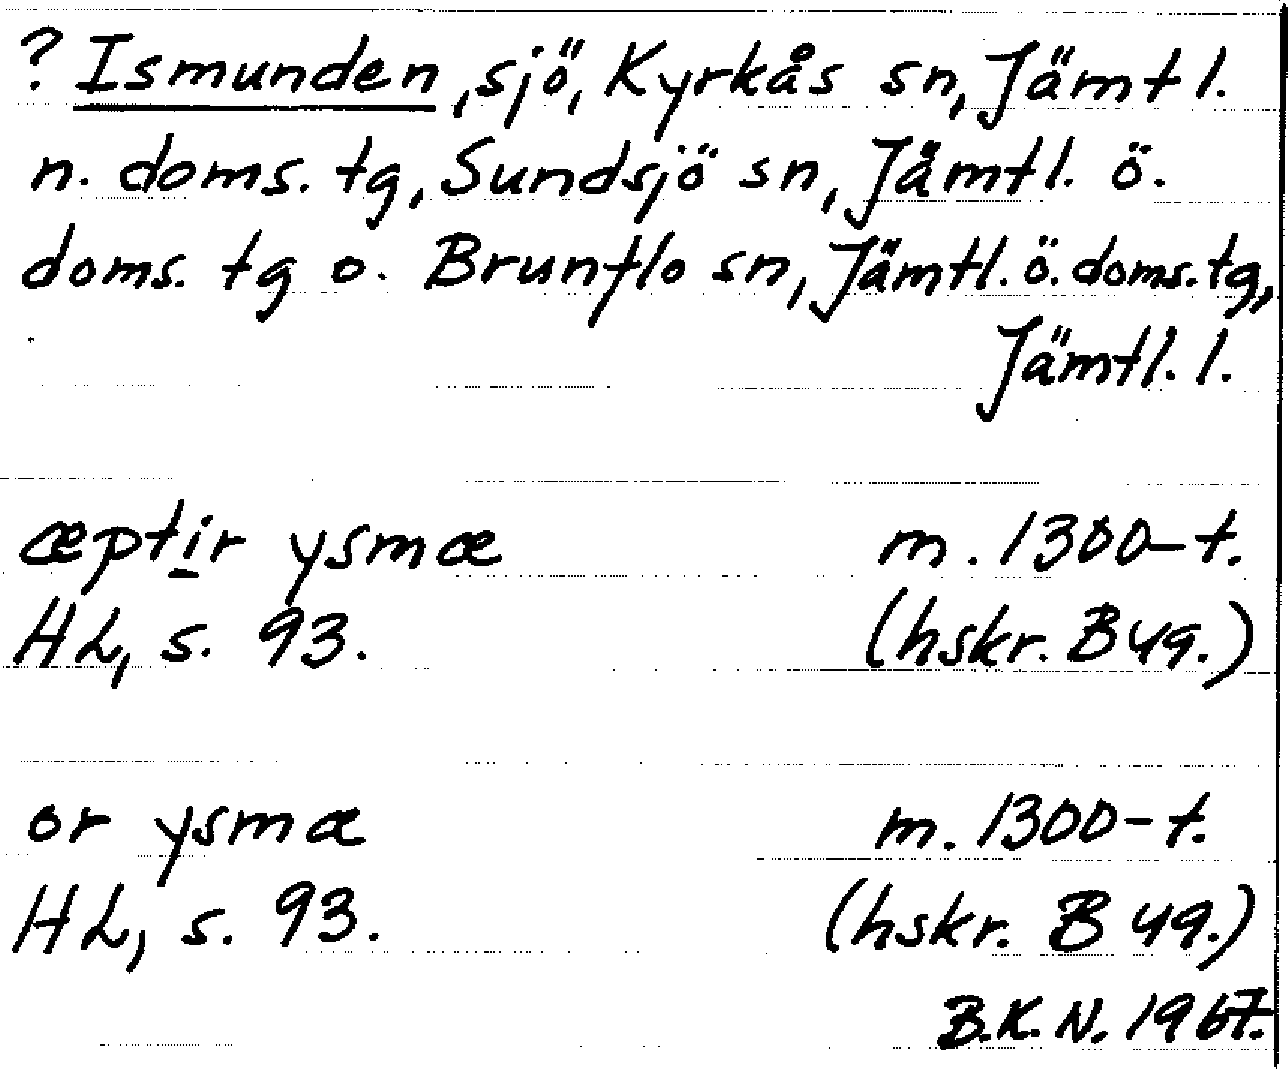 ? Ismunden, sjö, Kyrkås sn, Jämtl.
n. doms. tg, Sundsjö sn, Jämtl. ö.
doms. tg o. Brunflo sn, Jämtl. ö. doms. tg,
Jämtl. l.
æptir ysmæ m. 1300-t.
HL, s. 93. (hskr. B 49.)
or ysmæ m. 1300-t.
HL, s. 93. (hskr. B 49.)
B.K.N. 1967.